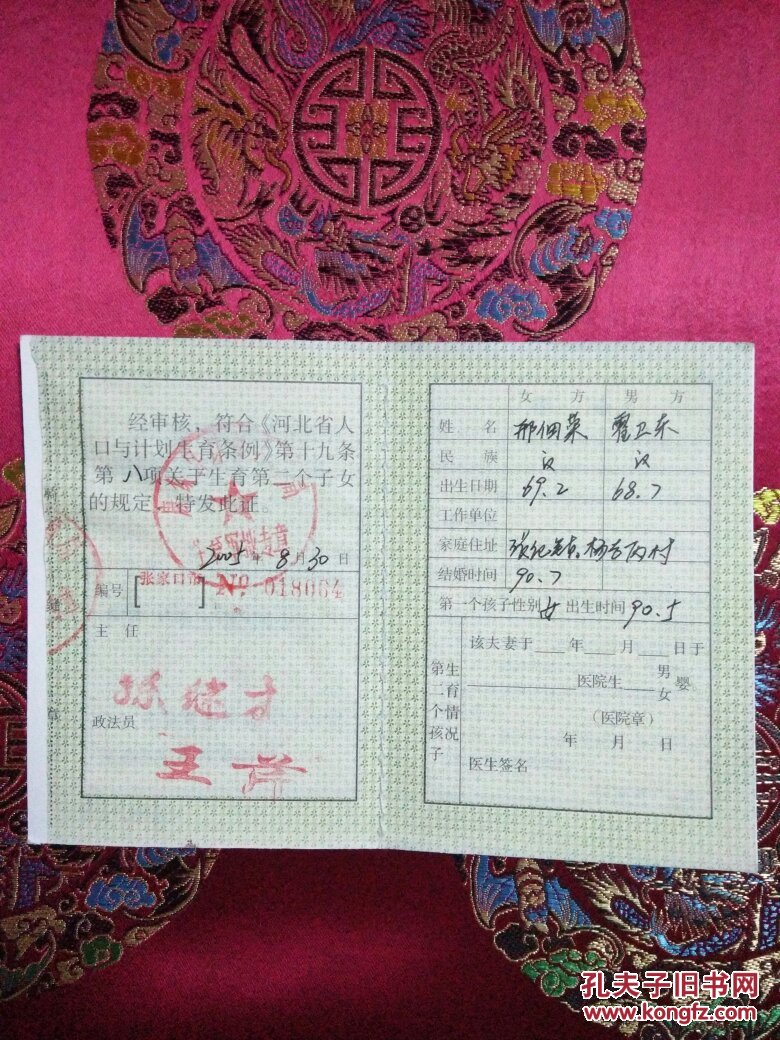 经审核，符合《河北省人
口与计划生育条例》第十九条
第八项关于生育第二个子女
的规定，特发此证。
2005年8月30日
编号[张家口市]No 018064
主 任
孙继才
政法员
王
女 方 男 方
姓 名 邢佃荣 霍卫东
民 族 汉 汉
出生日期 69.2 68.7
工作单位
家庭住址
结婚时间 90.7
第一个孩子性别 女 出生时间 90.5
第二个孩子生育情况
该夫妻于__年__月__日于
______医院生男女婴
（医院章）
年 月 日
医生签名
孔夫子旧书网
www.kongfz.com